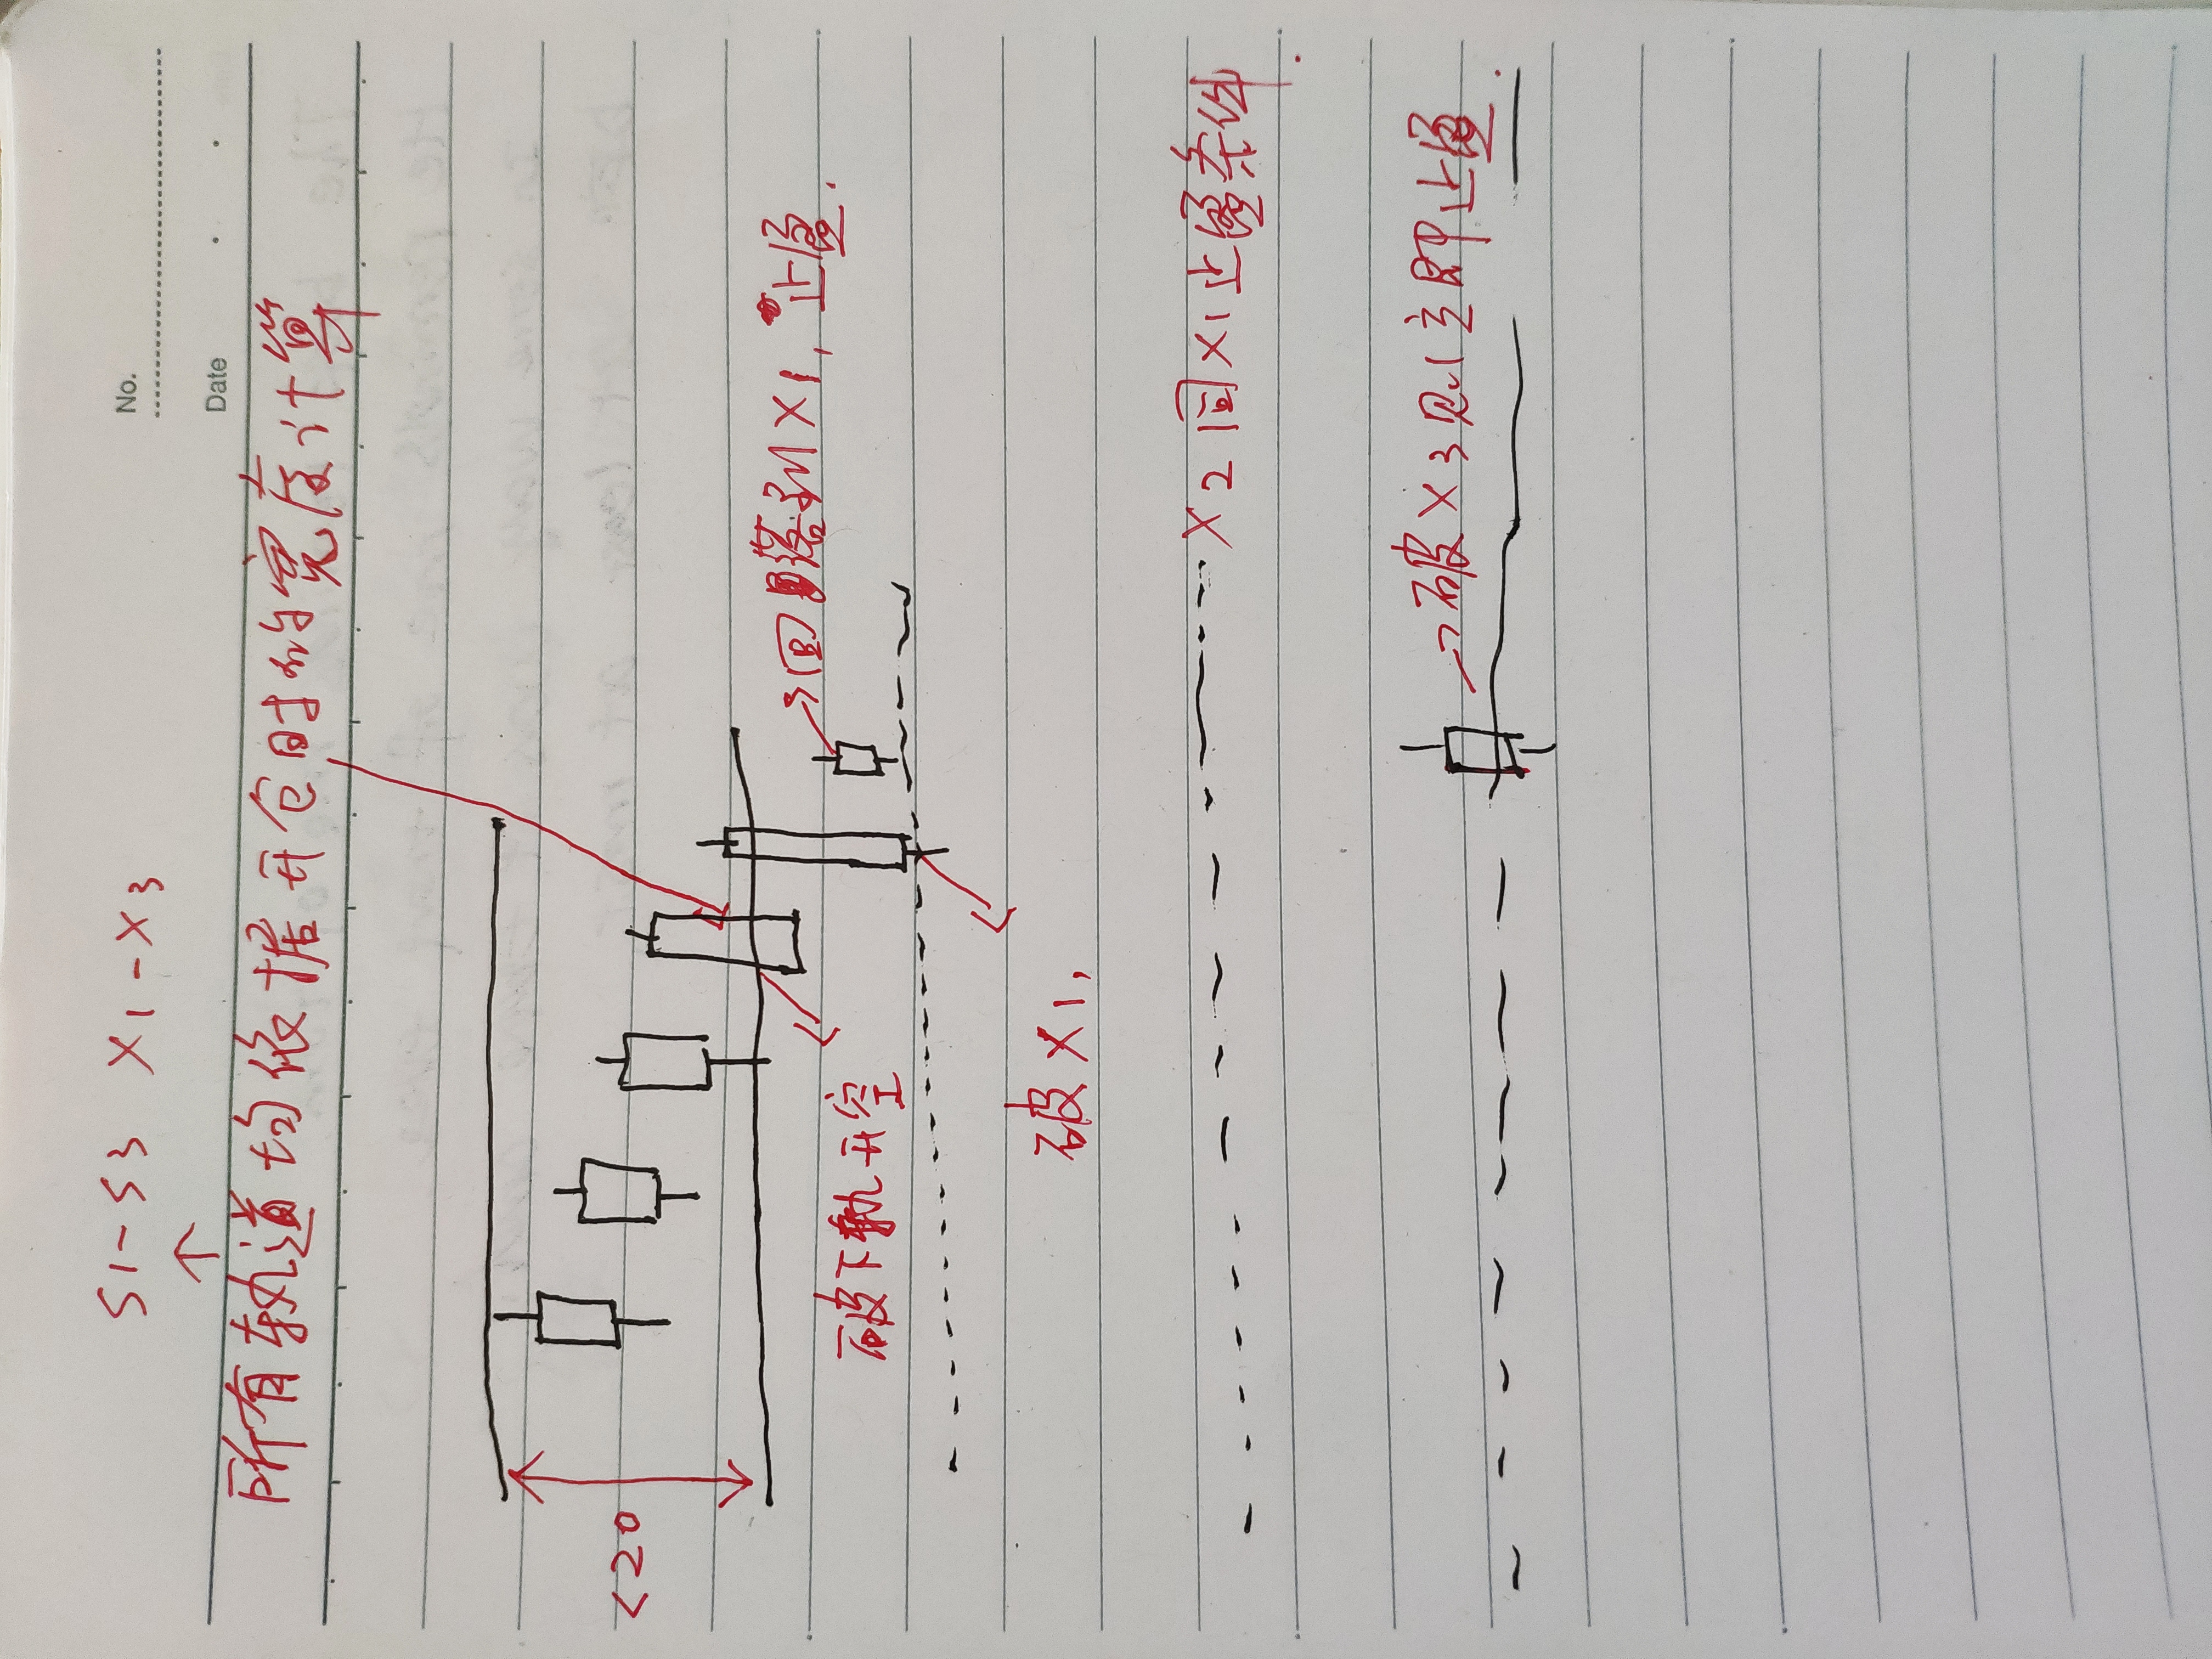 No.
Date
S1-S3 X1-X3
所有轨道均依据开仓时的宽度计算
<20
回落到X1,止盈.
破下轨开空
破X1,
X2同X1止盈条件.
破X3则立即止盈.